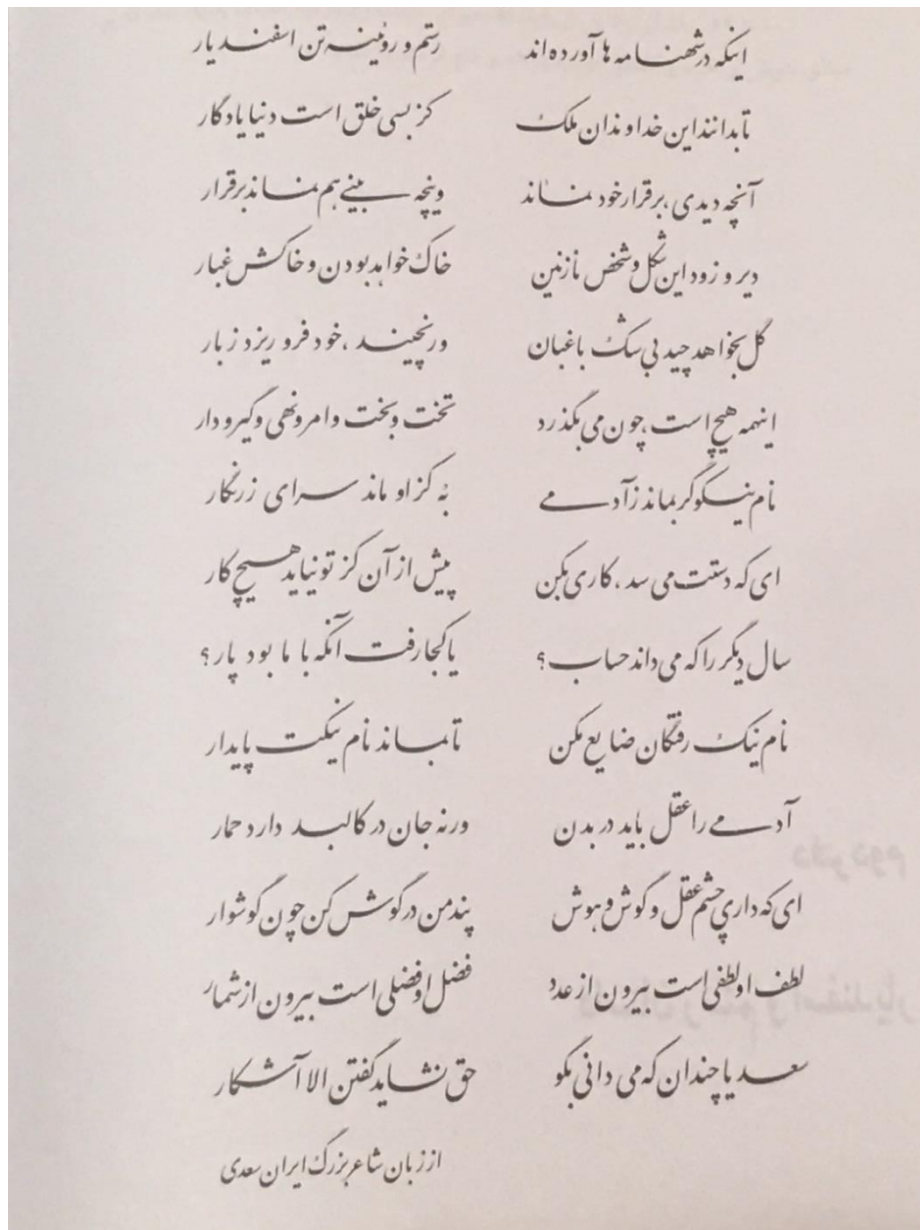 اینکه در شهنامه ها آورده اند رستم و روئینه تن اسفندیار
تا بدانند این خداوندان ملک کز بسی خلق است دنیا یادگار
آنچه دیدی، برقرار خود نماند وینچه بینے هم نماند برقرار
دیر و زود این شکل و شخص نازنین خاک خواهد بودن و خاکش غبار
گل بخواهد چید بی شک باغبان ورنچیند، خود فرو ریزد ز بار
اینهمه هیچ است، چون می بگذرد تخت و بخت و امر و نهی و گیر و دار
نام نیکو گر بماند ز آدمے به کز او ماند سرای زرنگار
ای که دستت می سد، کاری بکن پیش از آن کز تو نیاید هیچ کار
سال دیگر را که می داند حساب؟ یا کجا رفت آنکه با ما بود پار؟
نام نیک رفتگان ضایع مکن تا بماند نام نیکت پایدار
آدمے را عقل باید در بدن ورنه جان در کالبد دارد حمار
ای که داری چشم عقل و گوش و هوش پند من در گوش کن چون گوشوار
لطف او لطفی است بیرون از عدد فضل او فضلی است بیرون از شمار
سعدیا چندان که می دانی بگو حق نشاید گفتن الا آشکار
از زبان شاعر بزرگ ایران سعدی